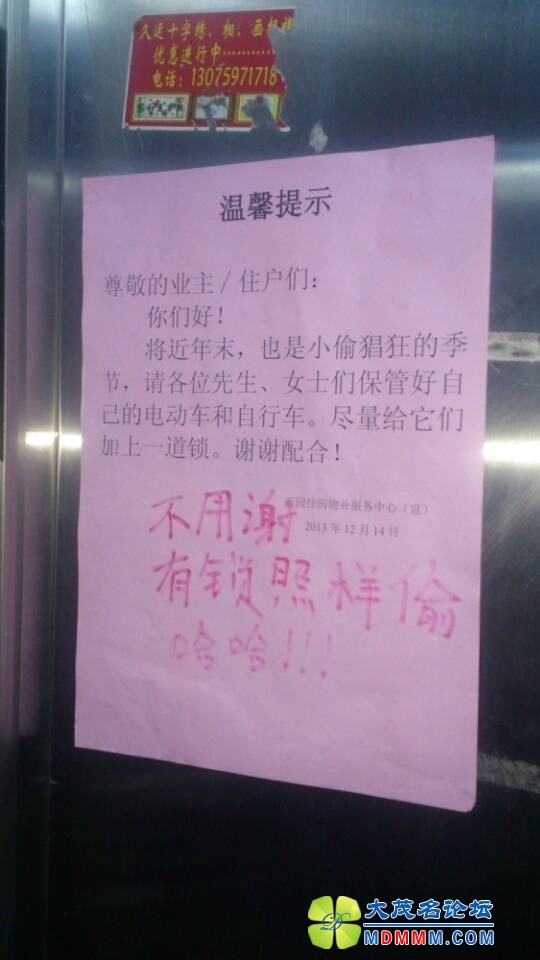 久运十字绣、相、画框裱
优惠进行中…………
电话:13075971718
温馨提示
尊敬的业主/住户们:
你们好!
将近年末,也是小偷猖狂的季
节,请各位先生、女士们保管好自
己的电动车和自行车。尽量给它们
加上一道锁。谢谢配合!
园佳园物业服务中心(宣)
2013年12月14日
不用谢
有锁照样偷
哈哈!!!
大茂名论坛
MDMMM.COM